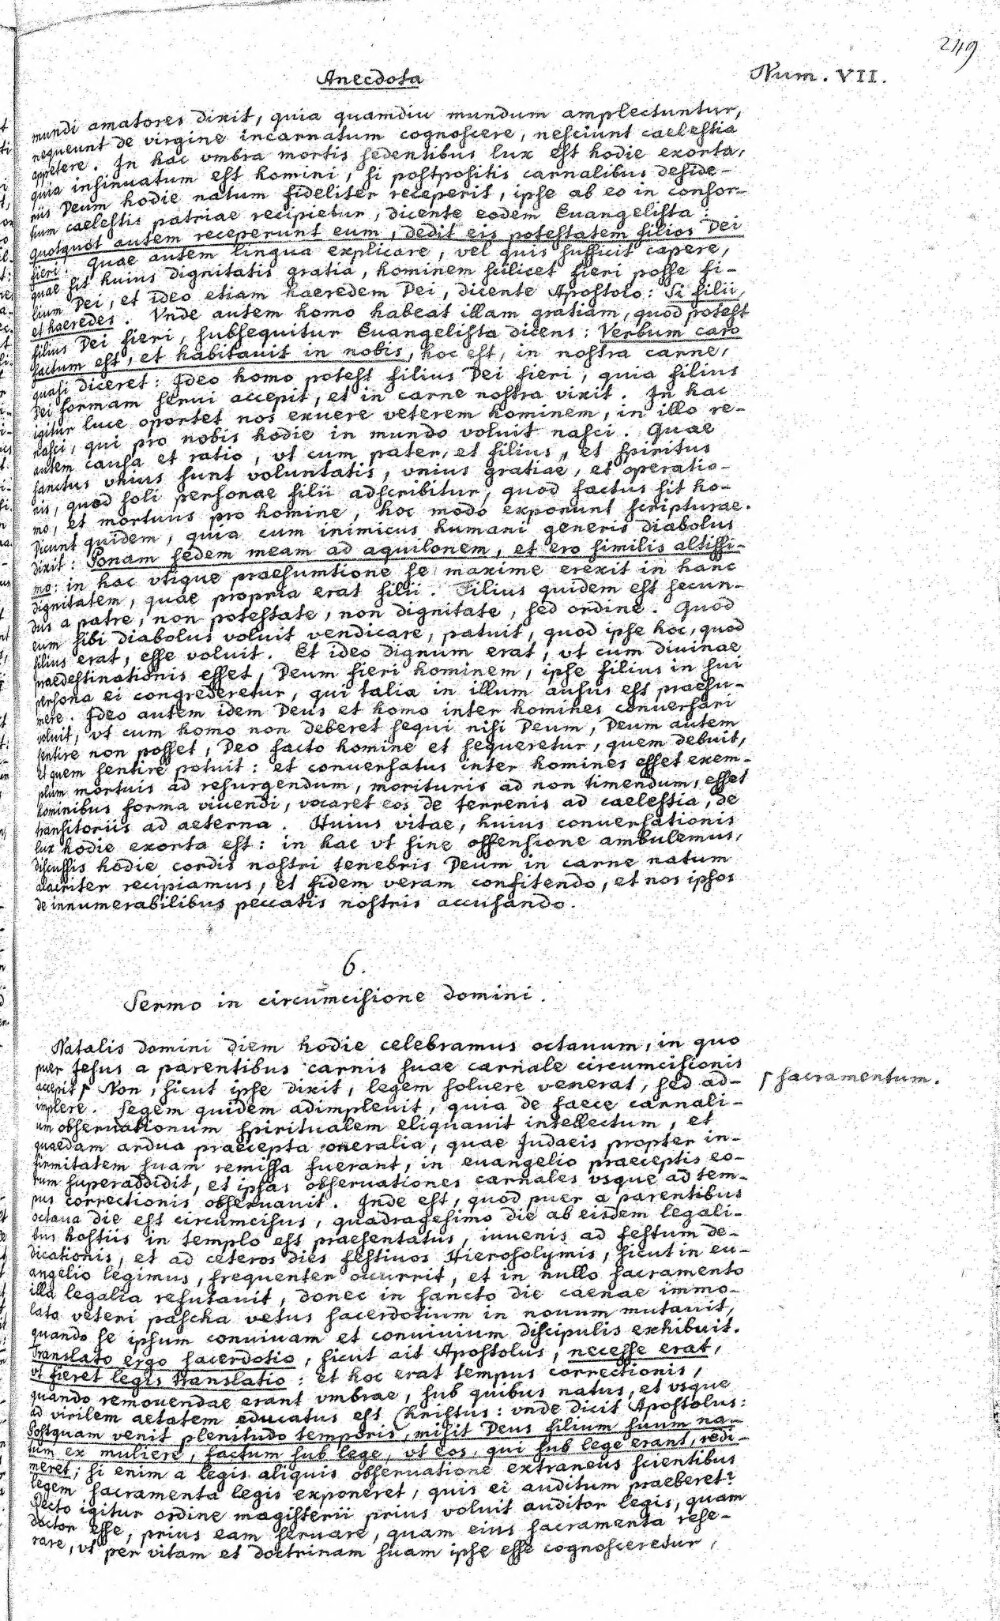 249
Anecdota
Num. VII.
mundi amatores dixit, quia quamdiu mundum amplectuntur,
nequeunt de virgine incarnatum cognoscere, nesciunt caelestia
appetere. In hac vmbra mortis sedentibus lux est hodie exorta,
quia insinuatum est homini, si postpositis carnalibus deside-
riis Deum hodie natum fideliter receperit, ipse ab eo in consor-
tium caelestis patriae recipietur, dicente eodem Euangelista:
Quotquot autem receperunt eum, dedit eis potestatem filios Dei
fieri. Quae autem lingua explicare, vel quis sufficit capere,
quae sit huius dignitatis gratia, hominem scilicet fieri posse fi-
lium Dei, et ideo etiam haeredem Dei, dicente Apostolo: Si filii,
et haeredes. Vnde autem homo habeat illam gratiam, quod potest
filius Dei fieri, subsequitur Euangelista dicens: Verbum caro
factum est, et habitauit in nobis, hoc est, in nostra carne,
quasi diceret: Ideo homo potest filius Dei fieri, quia filius
Dei formam serui accepit, et in carne nostra vixit. In hac
igitur luce oportet nos exuere veterem hominem, in illo re-
nasci, qui pro nobis hodie in mundo voluit nasci. Quae
autem causa et ratio, vt cum pater, et filius, et spiritus
sanctus vnius sunt voluntatis, vnius gratiae, et operatio-
nis, quod soli personae filii adscribitur, quod factus sit ho-
mo, et mortuus pro homine, hoc modo exponunt scripturae.
Dicunt quidem, quia cum inimicus humani generis diabolus
dixit: Ponam sedem meam ad aquilonem, et ero similis altissi-
mo: in hac vtique praesumtione se maxime erexit in hanc
dignitatem, quae propria erat filii. Filius quidem est secun-
dus a patre, non potestate, non dignitate, sed ordine. Quod
cum sibi diabolus voluit vendicare, patuit, quod ipse hoc, quod
filius erat, esse voluit. Et ideo dignum erat, vt cum diuinae
praedestinationis esset, Deum fieri hominem, ipse filius in sui
persona ei congrederetur, qui talia in illum ausus est praesu-
mere. Ideo autem idem Deus et homo inter homines conuersari
voluit, vt cum homo non deberet sequi nisi Deum, Deum autem
sentire non posset, Deo facto homine et sequeretur, quem debuit,
et quem sentire potuit: et conuersatus inter homines esset exem-
plum mortuis ad resurgendum, morituris ad non timendum, esset
hominibus forma viuendi, vocaret eos de terrenis ad caelestia, de
transitoriis ad aeterna. Huius vitae, huius conuersationis
lux hodie exorta est: in hac vt sine offensione ambulemus,
discussis hodie cordis nostri tenebris Deum in carne natum
alacriter recipiamus, et fidem veram confitendo, et nos ipsos
de innumerabilibus peccatis nostris accusando.
6.
Sermo in circumcisione domini.
Natalis domini diem hodie celebramus octauum, in quo
puer Jesus a parentibus carnis suae carnale circumcisionis
accepit ſ Non, sicut ipse dixit, legem soluere venerat, sed ad-
ſ sacramentum.
implere. Legem quidem adimpleuit, quia de faece carnali-
um obseruationum spiritualem eliquauit intellectum, et
quaedam ardua praecepta moralia, quae Judaeis propter in-
firmitatem suam remissa fuerant, in euangelio praeceptis eo-
rum superaddidit, et ipsas obseruationes carnales vsque ad tem-
pus correctionis obseruauit. Inde est, quod puer a parentibus
octaua die est circumcisus, quadragesimo die ab eisdem legali-
bus hostiis in templo est praesentatus, iuuenis ad festum de-
dicationis, et ad ceteros dies festiuos Hierosolymis, sicut in eu-
angelio legimus, frequenter occurrit, et in nullo sacramento
illa legalia refutauit, donec in sancto die caenae immo-
lato veteri pascha vetus sacerdotium in nouum mutauit,
quando se ipsum conuiuam et conuiuium discipulis exhibuit.
Translato ergo sacerdotio, sicut ait Apostolus, necesse erat,
vt fieret legis translatio: et hoc erat tempus correctionis,
quando remouendae erant vmbrae, sub quibus natus, et vsque
ad virilem aetatem educatus est Christus: vnde dicit Apostolus:
Postquam venit plenitudo temporis, misit Deus filium suum na-
tum ex muliere, factum sub lege, vt eos, qui sub lege erant, redi-
meret; si enim a legis aliquis obseruatione extraneus scientibus
legem sacramenta legis exponeret, quis ei auditum praeberet?
Recto igitur ordine magisterii prius voluit auditor legis, quam
doctor esse, prius eam seruare, quam eius sacramenta rese-
rare, vt per vitam et doctrinam suam ipse esse cognosceretur,